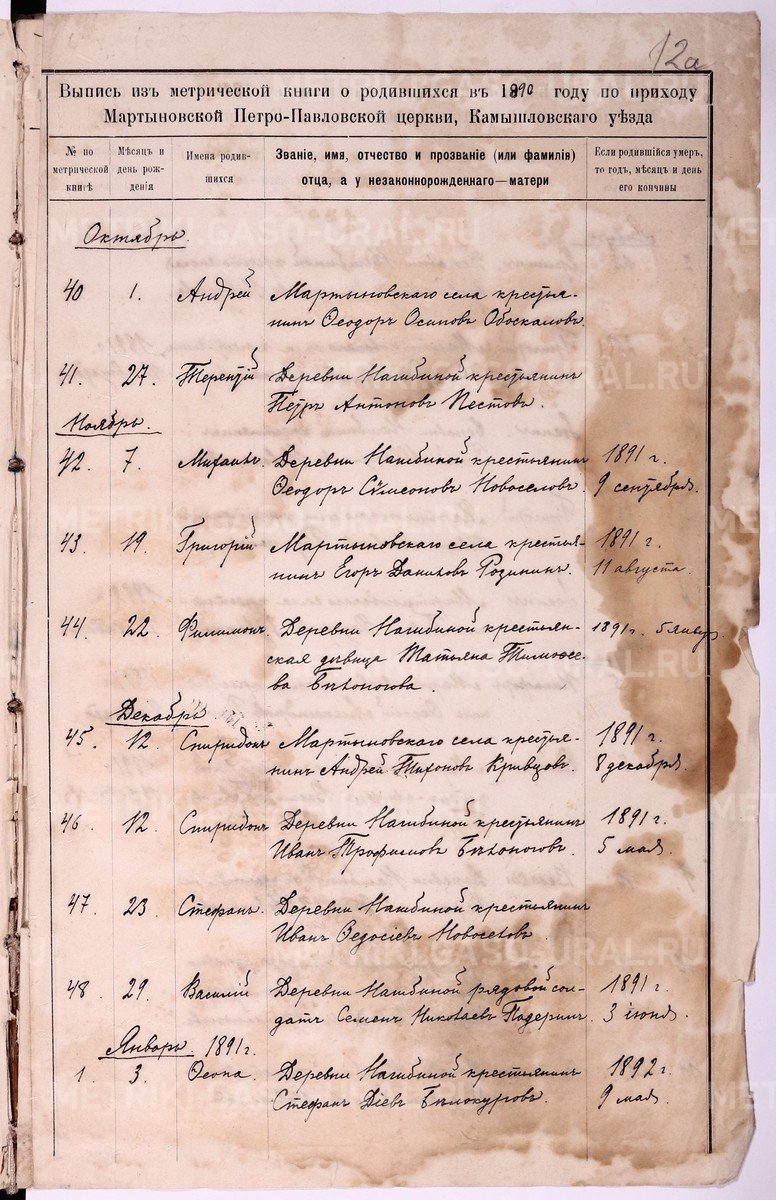 12а
Выпись изъ метрической книги о родившихся въ 1890 году по приходу
Мартыновской Петро-Павловской церкви, Камышловскаго уѣзда
№ по метрической книгѣ
Мѣсяцъ и день рожденія
Имена родившихся
Званіе, имя, отчество и прозваніе (или фамилія)
отца, а у незаконнорожденнаго—матери
Если родившійся умеръ, то годъ, мѣсяцъ и день его кончины
Октябрь.
40 1. Андрей Мартыновскаго села крестья-
нинъ Ѳеодоръ Осиповъ Обоскаловъ.
41. 27. Терентій Деревни Нагибиной крестьянинъ
Петръ Антоновъ Пестовъ.
Ноябрь.
42. 7. Михаилъ. Деревни Нагибиной крестьянинъ 1891 г.
Ѳеодоръ Сѵмеоновъ Новоселовъ. 9 сентября.
43. 19. Григорій Мартыновскаго села крестья- 1891 г.
нинъ Егоръ Даниловъ Родининъ. 11 августа.
44. 22. Филимонъ. Деревни Нагибиной крестьян- 1891 г. 5 январ.
ская дѣвица Татьяна Тимоѳее-
ва Бѣлоногова.
Декабрь
45. 12. Спиридонъ Мартыновскаго села крестья- 1891 г.
нинъ Андрей Тихоновъ Кривцовъ. 8 декабря.
46. 12. Спиридонъ Деревни Нагибиной крестьянинъ 1891 г.
Иванъ Трофимовъ Бѣлоноговъ. 5 мая.
47. 23. Стефанъ. Деревни Нагибиной крестьянинъ
Иванъ Ѳедосіевъ Новоселовъ.
48. 29. Василій Деревни Нагибиной рядовой сол- 1891 г.
датъ Семенъ Николаевъ Падеринъ. 3 іюня.
Январь. 1891 г.
1. 3. Ѳеопа. Деревни Нагибиной крестьянинъ 1892 г.
Стефанъ Діевъ Бѣлокуровъ. 9 мая.
METRIKI.GASO-URAL.RU